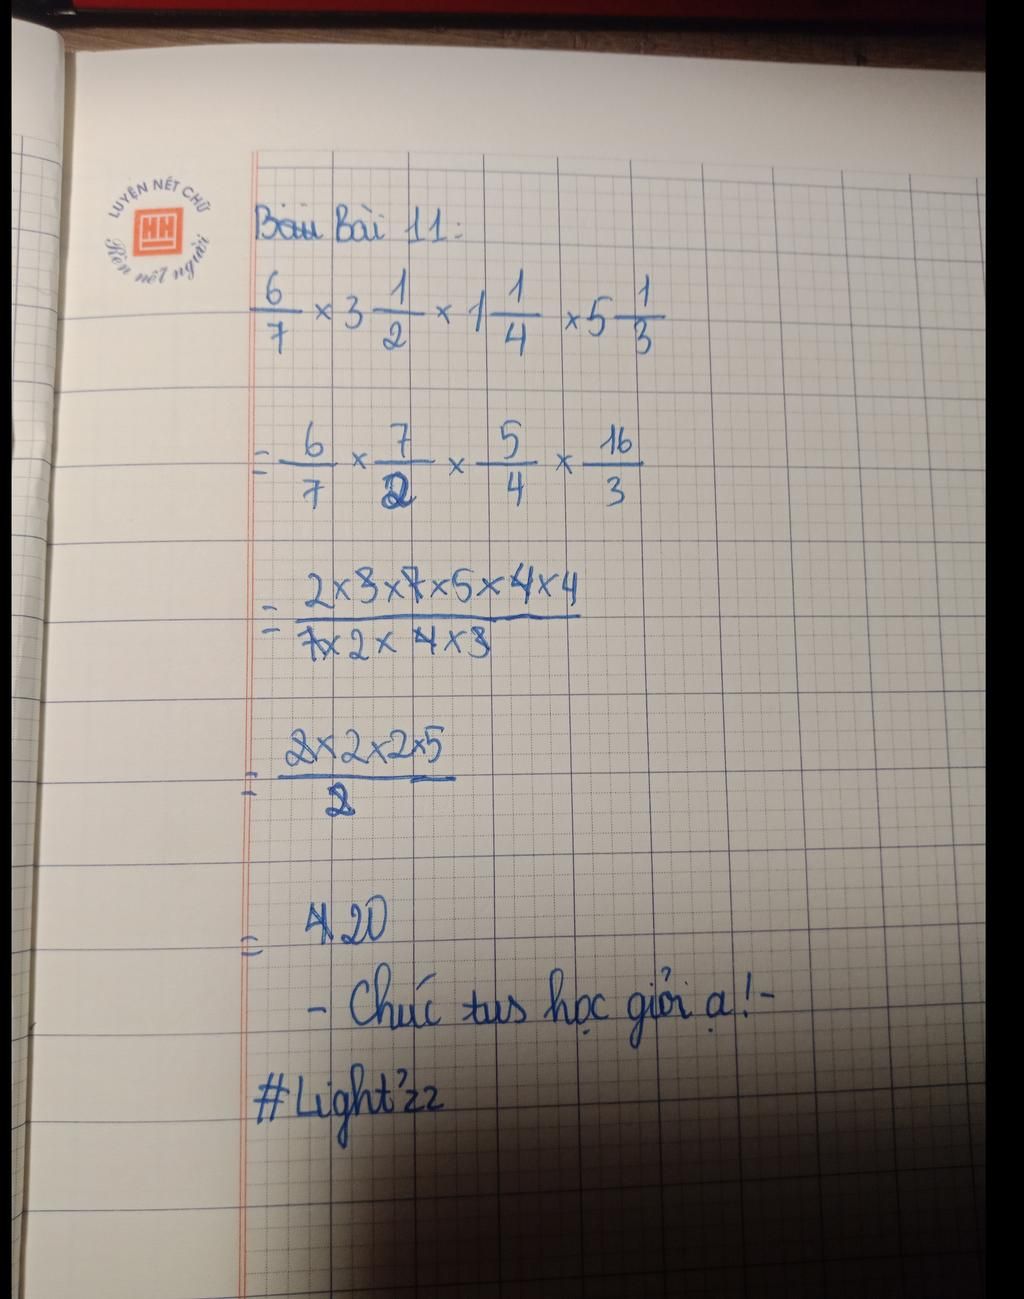 LUYỆN NÉT CHỮ
HH
Rèn nết người
Bài 11:
6/7 × 3 1/2 × 1 1/4 × 5 1/3
= 6/7 × 7/2 × 5/4 × 16/3
= 2×3×7×5×4×4 / 7×2×4×3
= 2×2×2×5 / 2
= 20
- Chúc tus học giỏi ạ! -
#Light'zz